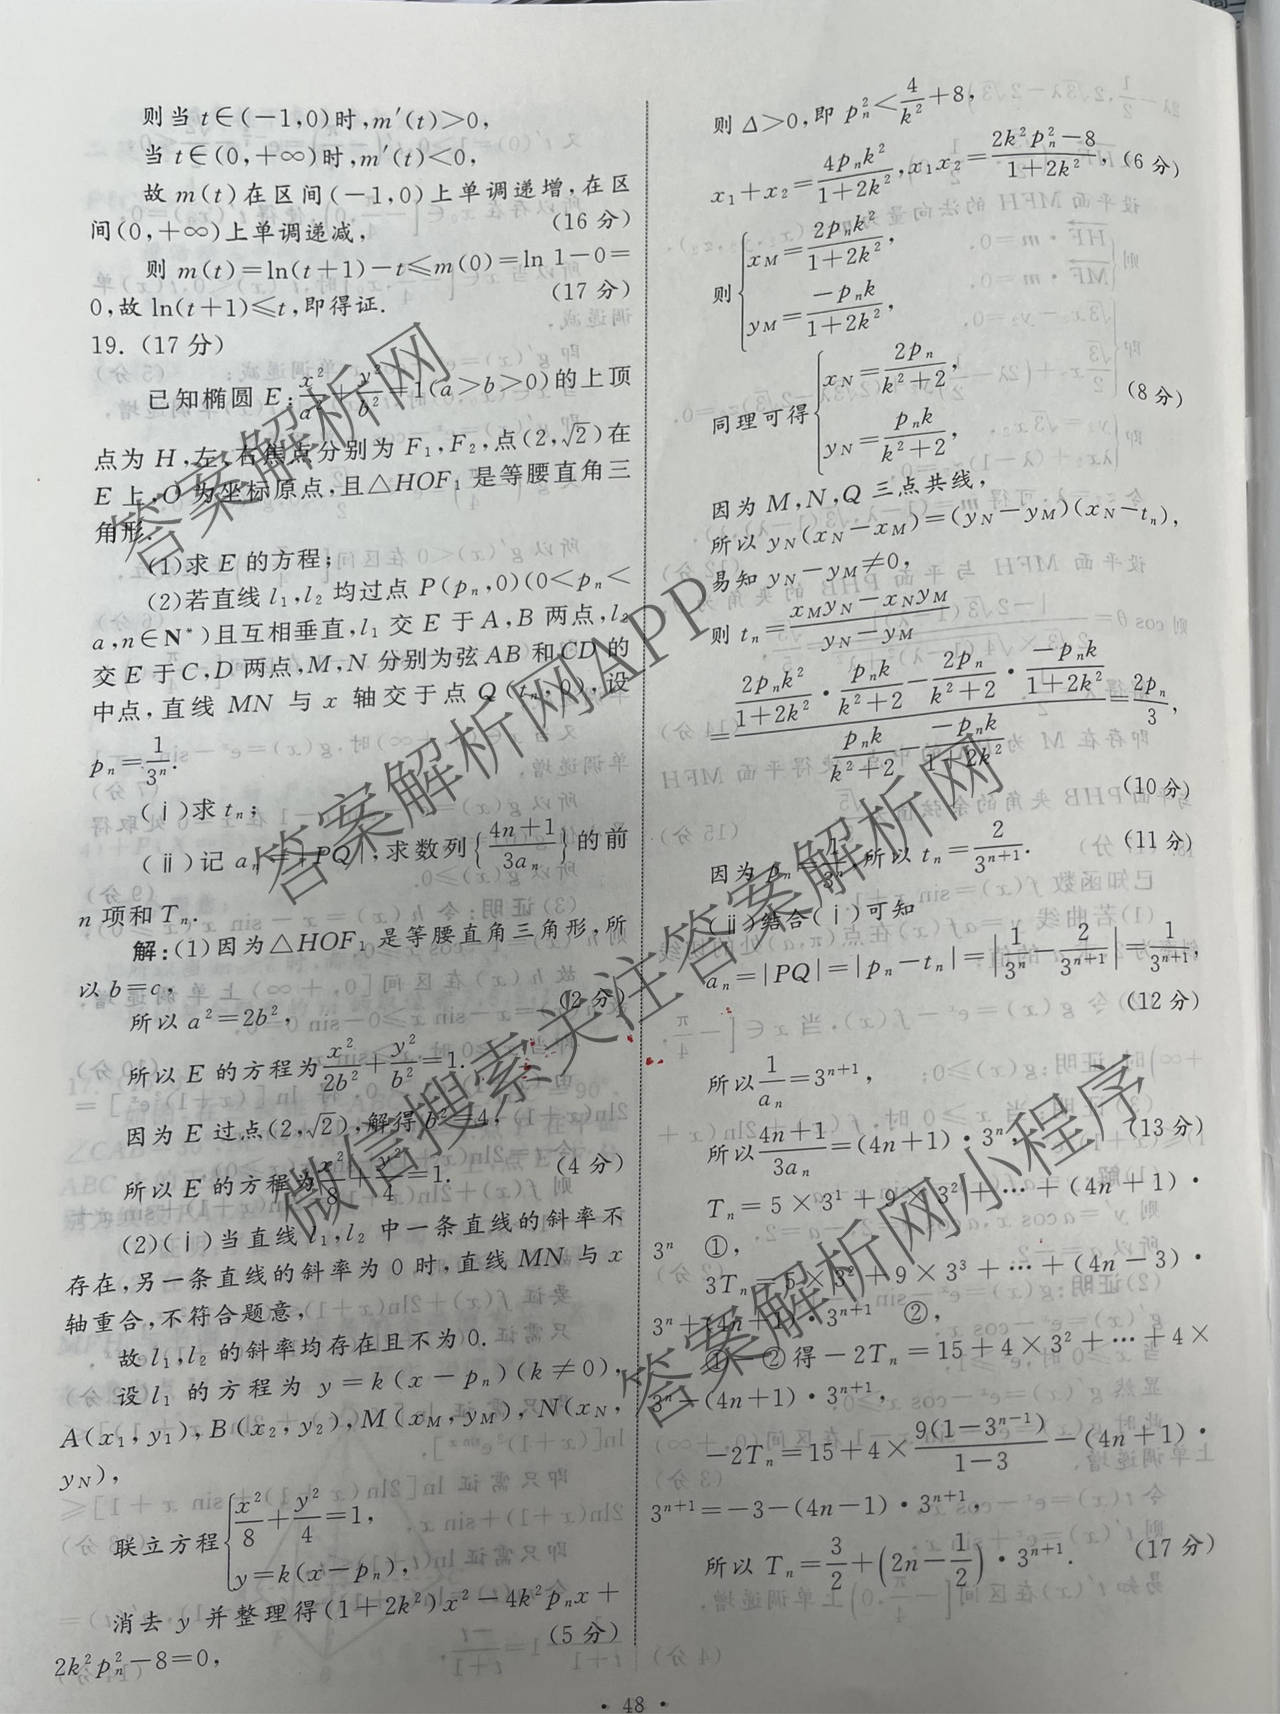 则当 t∈(-1,0)时,m′(t)>0,
当 t∈(0,+∞)时,m′(t)<0,
故 m(t)在区间(-1,0)上单调递增,在区
间(0,+∞)上单调递减, (16 分)
则 m(t)=ln(t+1)-t≤m(0)=ln 1-0=
0,故 ln(t+1)≤t,即得证. (17 分)
19. (17 分)
已知椭圆 E:x²/a²+y²/b²=1(a>b>0)的上顶
点为 H,左、右焦点分别为 F₁,F₂,点(2,√2)在
E 上,O 为坐标原点,且△HOF₁ 是等腰直角三
角形.
(1)求 E 的方程;
(2)若直线 l₁,l₂ 均过点 P(pₙ,0)(0<pₙ<
a,n∈N*)且互相垂直,l₁ 交 E 于 A,B 两点,l₂
交 E 于 C,D 两点,M,N 分别为弦 AB 和 CD 的
中点,直线 MN 与 x 轴交于点 Q(tₙ,0),设
pₙ=1/3ⁿ.
(ⅰ)求 tₙ;
(ⅱ)记 aₙ=|PQ|,求数列{(4n+1)/(3aₙ)}的前
n 项和 Tₙ.
解:(1)因为△HOF₁ 是等腰直角三角形,所
以 b=c, (2 分)
所以 a²=2b²,
所以 E 的方程为x²/2b²+y²/b²=1.
因为 E 过点(2,√2),解得 b²=4,
所以 E 的方程为x²/8+y²/4=1. (4 分)
(2)(ⅰ)当直线 l₁,l₂ 中一条直线的斜率不
存在,另一条直线的斜率为 0 时,直线 MN 与 x
轴重合,不符合题意,
故 l₁,l₂ 的斜率均存在且不为 0.
设 l₁ 的方程为 y=k(x-pₙ)(k≠0),
A(x₁,y₁),B(x₂,y₂),M(x_M,y_M),N(x_N,
y_N),
联立方程{x²/8+y²/4=1,
y=k(x-pₙ),
消去 y 并整理得(1+2k²)x²-4k²pₙx+
2k²pₙ²-8=0, (5 分)
则 Δ>0,即 pₙ²<4/k²+8,
x₁+x₂=4pₙk²/(1+2k²),x₁x₂=(2k²pₙ²-8)/(1+2k²), (6 分)
则{x_M=2pₙk²/(1+2k²),
y_M=-pₙk/(1+2k²),
同理可得{x_N=2pₙ/(k²+2),
y_N=pₙk/(k²+2), (8 分)
因为 M,N,Q 三点共线,
所以 y_N(x_N-x_M)=(y_N-y_M)(x_N-tₙ),
易知 y_N-y_M≠0,
则 tₙ=(x_M y_N-x_N y_M)/(y_N-y_M)
=(2pₙk²/(1+2k²)·pₙk/(k²+2)-2pₙ/(k²+2)·-pₙk/(1+2k²))/(pₙk/(k²+2)--pₙk/(1+2k²))=2pₙ/3,
(10 分)
因为 pₙ=1/3ⁿ,所以 tₙ=2/3ⁿ⁺¹. (11 分)
(ⅱ)结合(ⅰ)可知
aₙ=|PQ|=|pₙ-tₙ|=|1/3ⁿ-2/3ⁿ⁺¹|=1/3ⁿ⁺¹,
(12 分)
所以1/aₙ=3ⁿ⁺¹,
所以(4n+1)/(3aₙ)=(4n+1)·3ⁿ, (13 分)
Tₙ=5×3¹+9×3²+⋯+(4n+1)·
3ⁿ ①,
3Tₙ=5×3²+9×3³+⋯+(4n-3)·
3ⁿ+(4n+1)·3ⁿ⁺¹ ②,
①-②得-2Tₙ=15+4×3²+⋯+4×
3ⁿ-(4n+1)·3ⁿ⁺¹,
-2Tₙ=15+4×9(1-3ⁿ⁻¹)/(1-3)-(4n+1)·
3ⁿ⁺¹=-3-(4n-1)·3ⁿ⁺¹,
所以 Tₙ=3/2+(2n-1/2)·3ⁿ⁺¹. (17 分)
· 48 ·
答案解析网
答案解析网APP
微信搜索关注答案解析网
答案解析网小程序